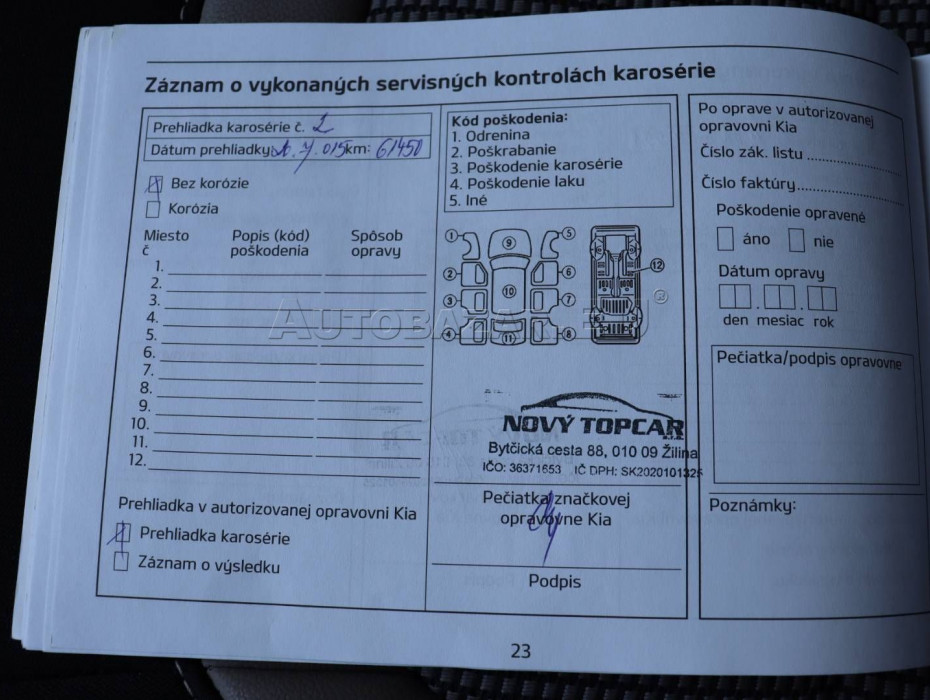 Záznam o vykonaných servisných kontrolách karosérie
Prehliadka karosérie č. 2
Dátum prehliadky: . 7. 015 km: 61450
Bez korózie
Korózia
Miesto č
Popis (kód) poškodenia
Spôsob opravy
1.
2.
3.
4.
5.
6.
7.
8.
9.
10.
11.
12.
Prehliadka v autorizovanej opravovni Kia
Prehliadka karosérie
Záznam o výsledku
Kód poškodenia:
1. Odrenina
2. Poškrabanie
3. Poškodenie karosérie
4. Poškodenie laku
5. Iné
1 9 5
2 6 12
3 10 7
4 11 8
AUTOBAZAR.EU®
NOVÝ TOPCAR
s.r.o.
Bytčická cesta 88, 010 09 Žilina
IČO: 36371653 IČ DPH: SK2020101325
Pečiatka značkovej
opravovne Kia
Podpis
Po oprave v autorizovanej
opravovni Kia
Číslo zák. listu
Číslo faktúry
Poškodenie opravené
áno nie
Dátum opravy
den mesiac rok
Pečiatka/podpis opravovne
Poznámky:
23